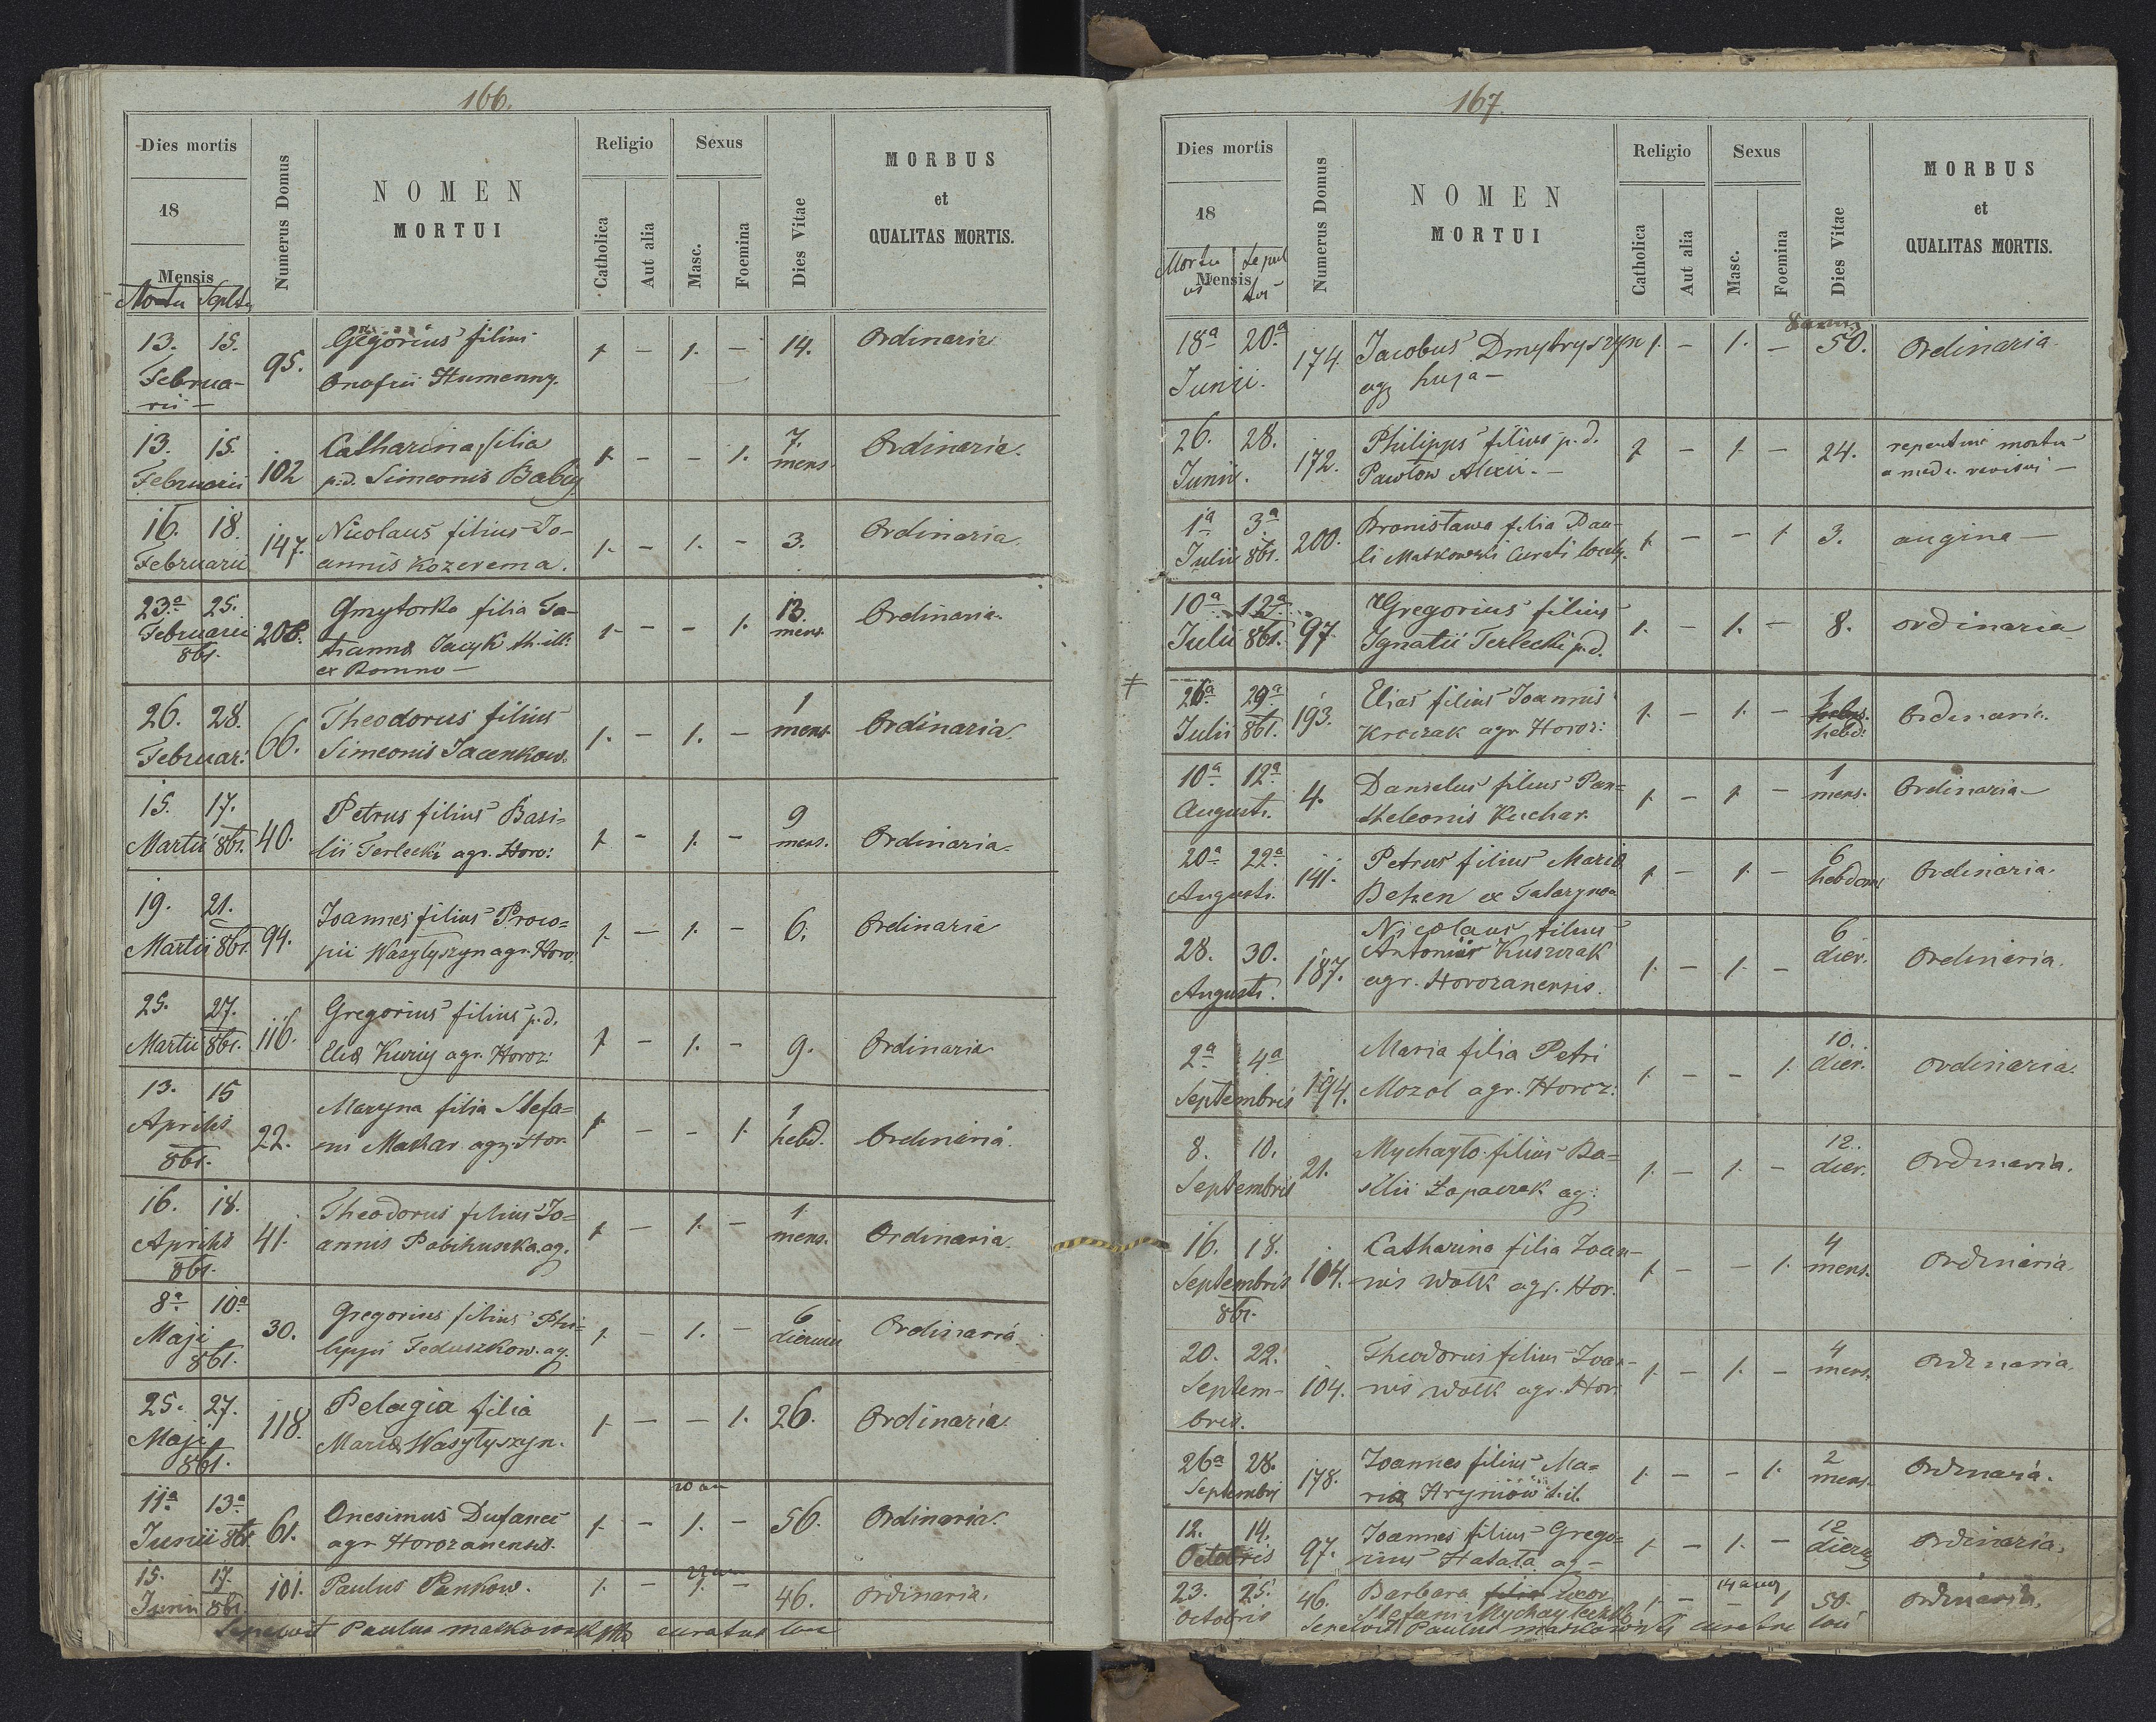 166.
Dies mortis
18
Mensis
Numerus Domus
NOMEN
MORTUI
Religio
Catholica
Aut alia
Sexus
Masc.
Foemina
Dies Vitae
MORBUS
et
QUALITAS MORTIS.
13. 15. Februa-
rii —
95.
Gregorius filius
Onofrii Humenny.
1. — 1. — 14. Ordinaria
13. 15. Februarii
102
Catharina filia
p.d. Simeonis Babij
1. — — 1. 7. mens. Ordinaria.
16. 18. Februarii
147.
Nicolaus filius Jo-
annis Kozerema.
1. — 1. — 3. Ordinaria.
23.a 25. Februarii 861.
208.
Gmytorko filia Ta-
Jacyk
ex Romno —
1. — — 1. 13. mens. Ordinaria.
26. 28. Februar:
66.
Theodorus filius
Simeonis Jacenkow.
1. — 1. — 1 mens. Ordinaria.
15. 17. Martii 861.
40.
Petrus filius Basi=
lii Terlecki agr. Horo:
1. — 1. — 9 mens. Ordinaria.
19. 21. Martii 861.
94.
Joannes filius Proco=
pii Wasylyszyn agr. Horo.
1. — 1. — 6. Ordinaria
25. 27. Martii 861.
116.
Gregorius filius p.d.
Eliæ Kuriy agr. Horoz:
1. — 1. — 9. Ordinaria
13. 15 Aprilis 861.
22.
Maryna filia Stefa=
ni Makar agr. Hor.
1. — — 1. 1 hebd. Ordinaria.
16. 18. Aprilis 861.
41.
Theodorus filius Jo=
annis Pobihuszka ag.
1. — 1. — 1. mens. Ordinaria.
8a. 10a Maji 861.
30.
Gregorius filius Phi=
lippi Feduszkow. ag.
1. — 1. — 6 dierum Ordinaria
25. 27. Maji 861.
118.
Pelagia filia
Mariæ Wasylyszyn.
1. — — 1. 26. Ordinaria.
11a 13a Junii 861.
61.
Onesimus Dufanec
agr Horozanensis.
1. — 1. — 56. Ordinaria.
15. 17. Junii 861.
101.
Paulus Pankow.
1. — 1. — 46. Ordinaria.
Sepelivit Paulus Matkowski curatus loci
167.
Dies mortis
18
Mensis
Numerus Domus
NOMEN
MORTUI
Religio
Catholica
Aut alia
Sexus
Masc.
Foemina
Dies Vitae
MORBUS
et
QUALITAS MORTIS.
18a 20a Junii.
174.
Jacobus Dmytryszyn
1. — 1. — 50. Ordinaria.
26. 28. Junii.
172.
Philippus filius p.d.
Pawlow Alexii. —
1 — 1. — 24.
1a 3a Julii 861.
200.
Bronislawa filia Pau-
li Matkowski Curati
1. — — 1 3. angina —
10a 12a Julii 861.
97.
Gregorius filius
Ignatii Terlecki p.d.
1. — 1. — 8. ordinaria
26a 29a Julii 861.
193.
Elias filius Joannis
agr Horoz:
1. — 1. — 1 hebd: Ordinaria.
10a 12a Augusti.
4.
Danielus filius Pan=
theleonis Kuchar.
1. — 1. — 1 mens. Ordinaria
20a 22a Augusti.
141.
Petrus filius Mariæ
Behen ex Tatarynow
1. — 1. — 6 hebdom Ordinaria.
28. 30. Augusti.
187.
Nicolaus filius
Antonii Kuszczak
agr. Horozanensis.
1. — 1. — 6 dier. Ordinaria.
2a 4a Septembris
194.
Maria filia Petri
Mozol agr. Horoz:
1. — — 1. 10. dier. Ordinaria.
8. 10. Septembris
21.
Mychaylo filius Ba=
silii Lapaczak ag:
1. — 1. — 12. dier. Ordinaria.
16. 18. Septembris 861.
104.
Catharina filia Joan-
nis Wolk agr. Hor.
1. — — 1. 4 mens. Ordinaria.
20. 22. Septem-
bris.
104.
Theodorus filius Joan-
nis Wolk agr. Hor.
1. — 1. — 4 mens. Ordinaria.
26a 28. Septembris
178.
Joannes filius Ma=
riæ Hryniow
1. — — 1. 2 mens. Ordinaria.
12. 14. Octobris
97.
Joannes filius Grego=
rius Halata ag —
1. — 1. — 12 dierum Ordinaria.
23. 25. Octobris
46.
Barbara filia uxor
Stefani Mychayleczko
1. — — 1 50. Ordinaria.
Sepelivit Paulus Matkowski curatus loci